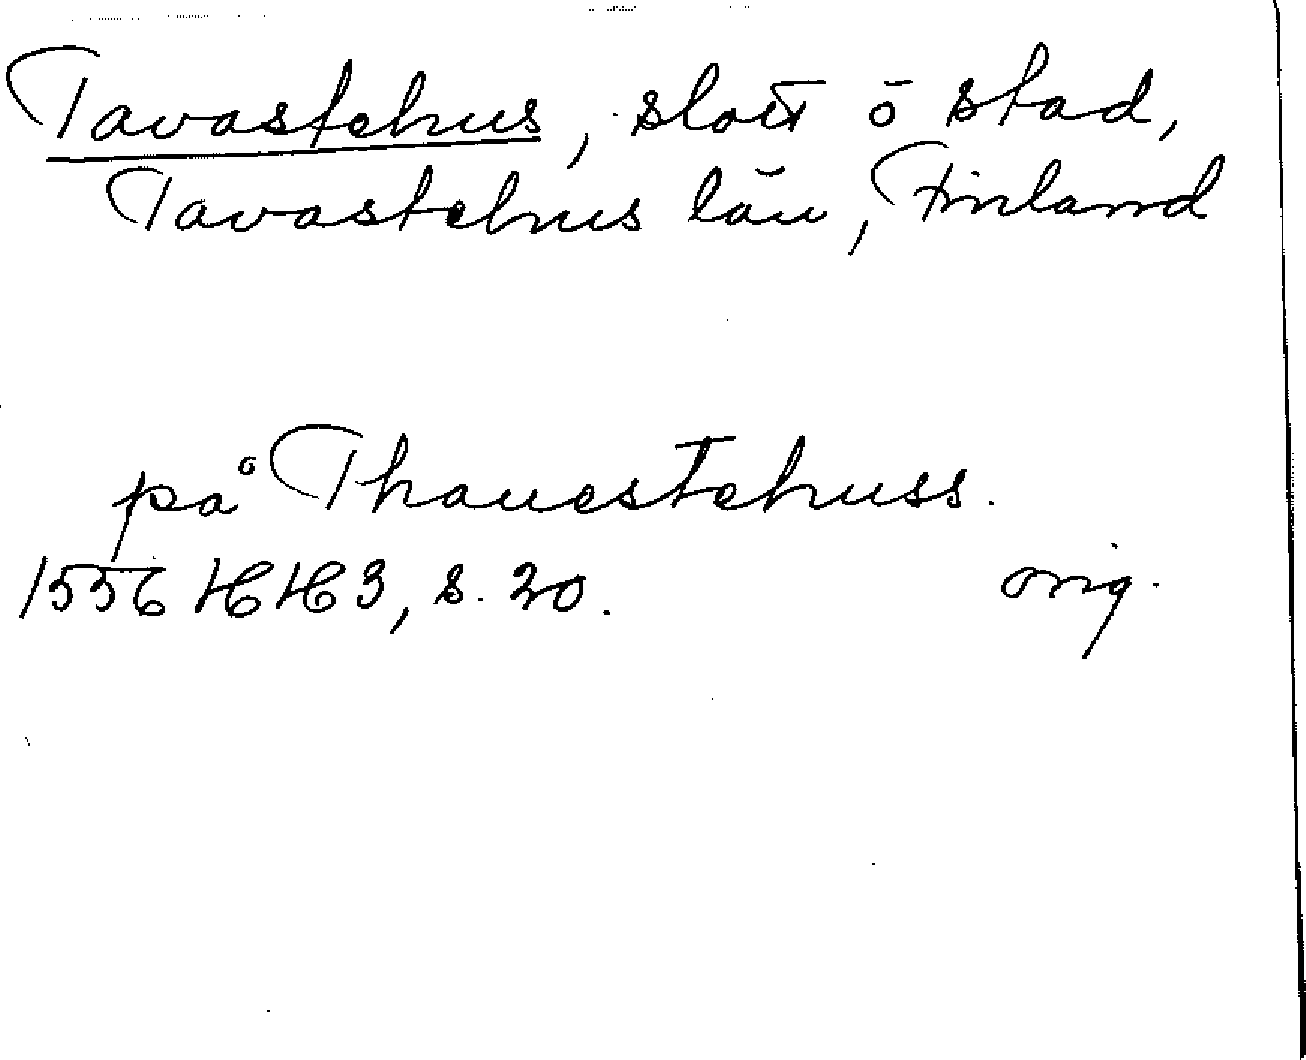 Tavastehus, slott o stad,
Tavastehus län, Finland
på Thauestehuss.
1556 HH 3, s. 20. orig.